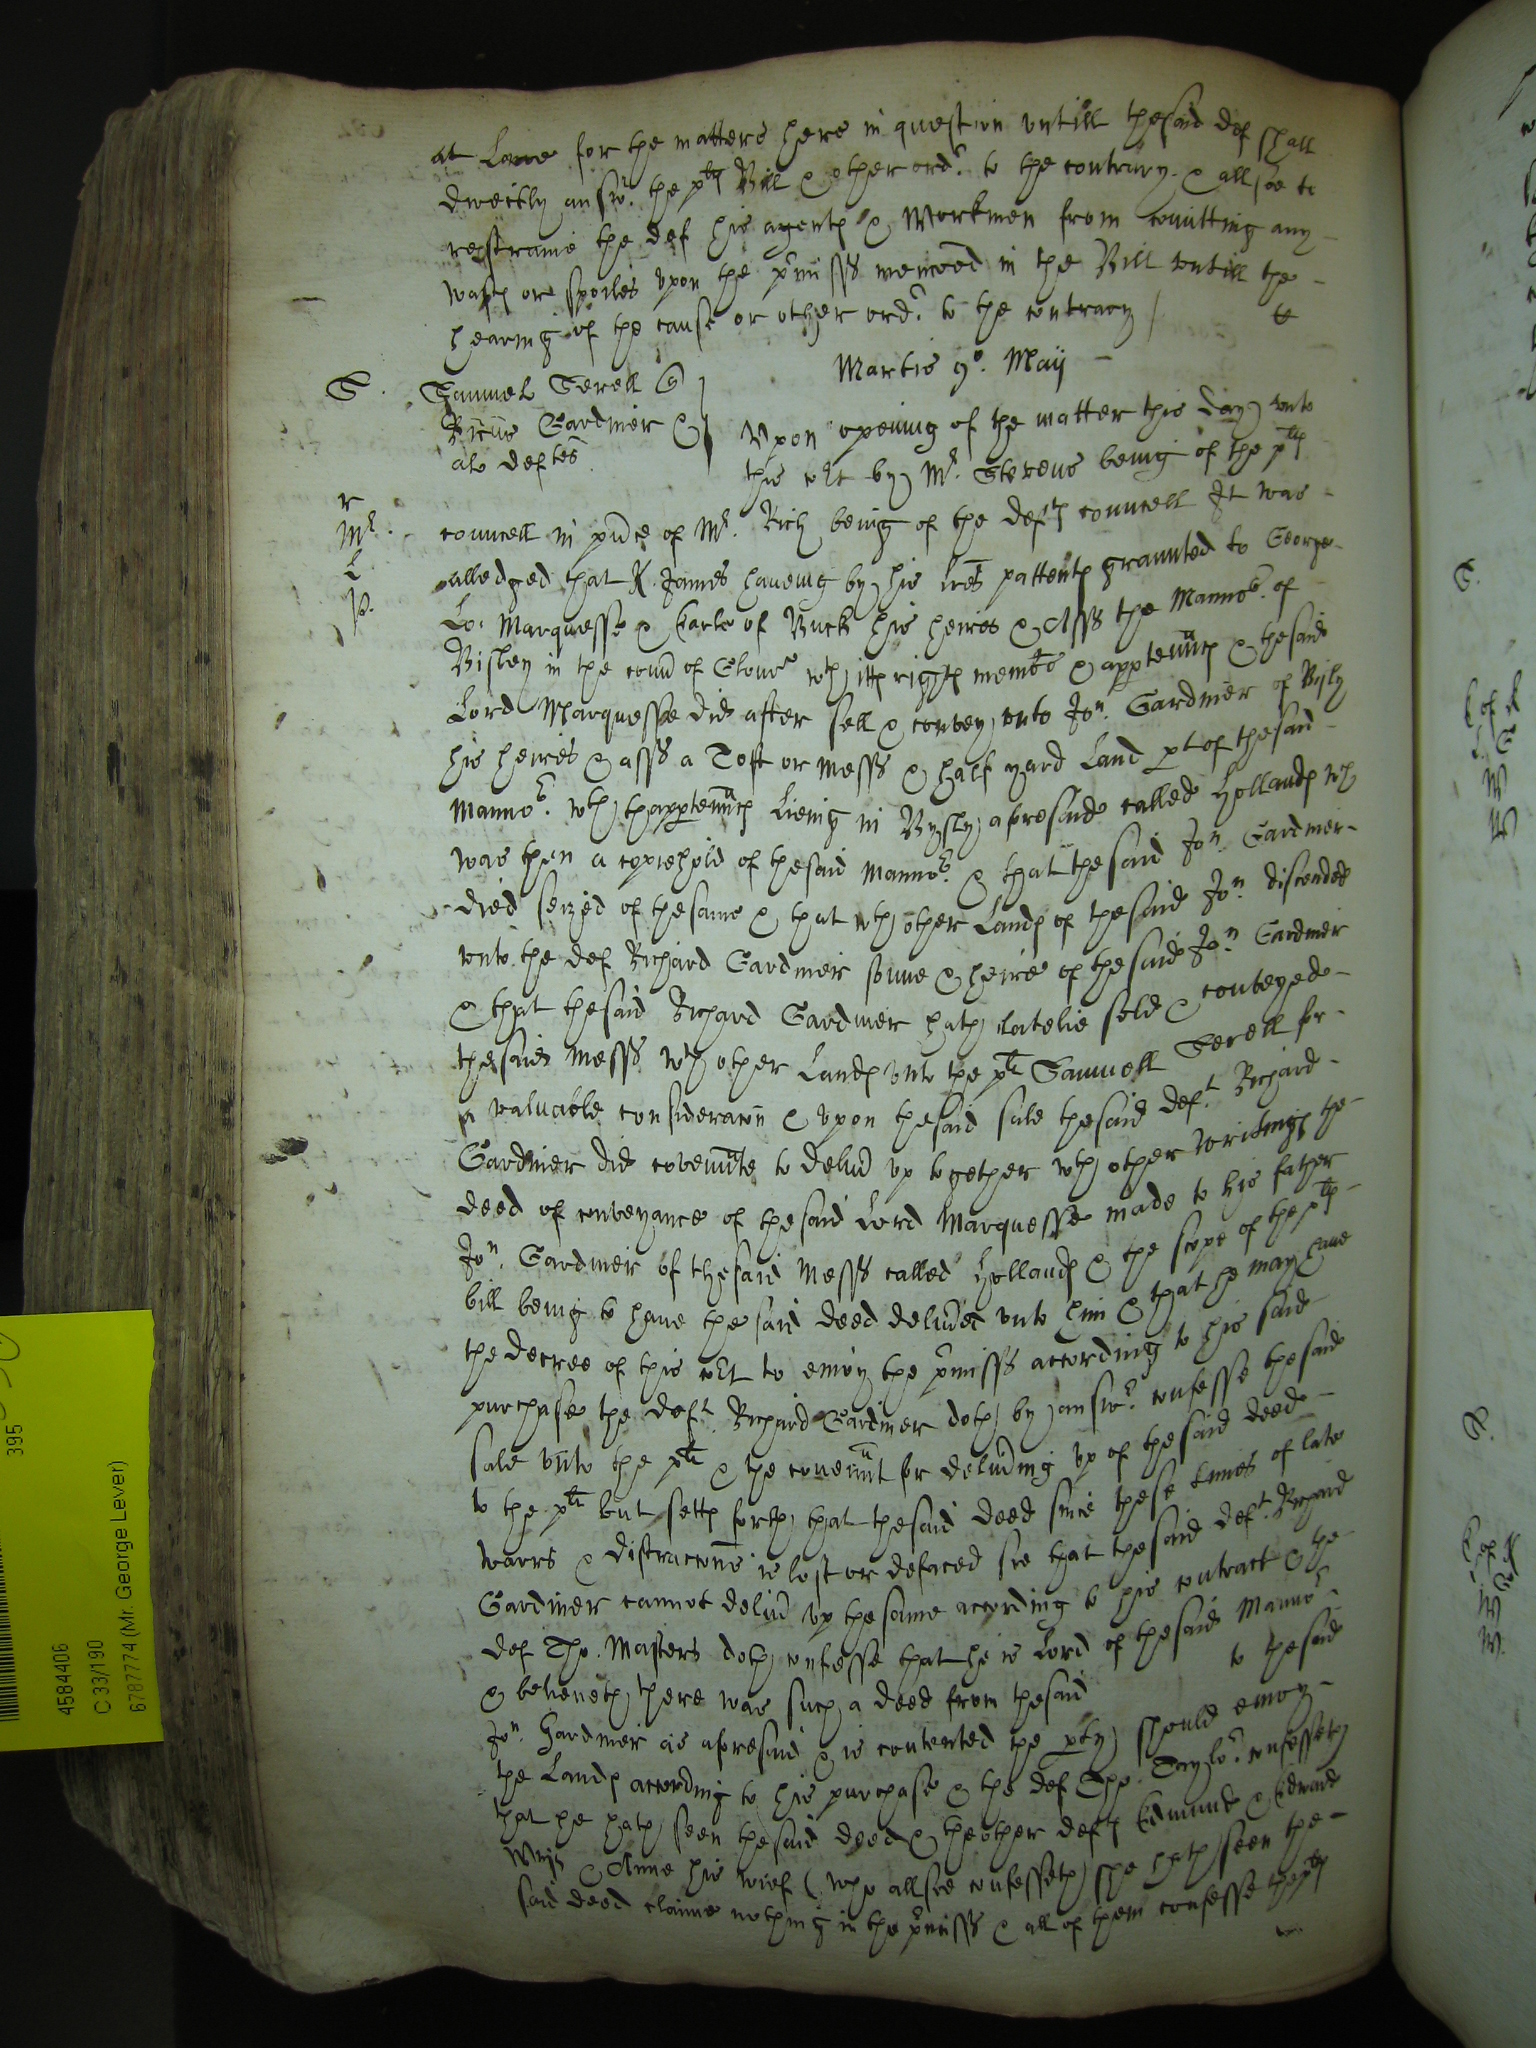 at Lawe for the matters here in question untill thesaid def shall
directly answr. the pltf Bill & other ordr. to the contrary & allsoe to
restraine the def his agents & Workmen from comitting any
wast or spoiles upon the prmisss menc̄oed in the Bill untill the
hearing of the cause or other ordr. to the contrary /
Martis 9o. Maij
S. Samuel Terell q
Ricus Gardiner &
als deftes
Upon opening of the matter this day unto
this cort by Mr. Stevens being of the plts
r
Mr.
L
p.
councell in prnce of Mr. Rich being of the defts councell It was
alledged that K. James haveing by his lres pattents graunted to George
Lo: Marquesse & Earle of Buck his heires & Asss the Mannor. of
Bisley in the coun of Glouc wth itts rights membrs & appurtennts & thesaid
Lord Marquesse did after sell & convey unto Jon. Gardiner of Bisly
his heires & asss a Toft or Messs & half yard Land pt of thesaid
Mannor. wth thappurtennts Lieing in Bysly aforesaid called Hollands wch
was then a copiehold of thesaid Mannor. & that thesaid Jon. Gardiner
died seized of thesame & that wth other Lands of thesaid Jon. discended
unto the def Richard Gardiner sonne & heire of thesaid Jon. Gardiner
& that thesaid Richard Gardiner hath latelie sold & conveyed
thesaid Messs wth other Lands unto the plt Samuell Terell for
a valuable consideracon & upon thesaid sale thesaid deft. Richard
Gardiner did covennte to deliu up together wth other Writings the
deed of conveyance of thesaid Lord Marquesse made to his father
Jon. Gardiner of thesaid Messs called Hollands & the scope of the plts
bill being to have thesaid deed deliued unto him & that he may have
the decree of this cort to enioy the prmisss according to his said
purchase the deft. Richard Gardiner doth by answr. confesse thesaid
sale unto the plt & the covennt for deliuing up of thesaid deed
to the plt but setts forth that thesaid deed since these times of late
warrs & distraccons is lost or defaced soe that thesaid deft. Richard
Gardiner cannot deliu up thesame according to his contract & the
def Tho. Masters doth confesse that he is Lord of thesaid Mannor
& beleveth there was such a deed from thesaid to thesaid
Jon. Gardiner as aforesaid & is contented the pty should enioy
the Lands according to his purchase & the def Tho. Taylor. confesseth
that he hath seen thesaid deed & the other defts Edmund & Edward
& Anne his wief (who allsoe confesseth she hath seen the
said deed claime nothing in the prmisss & all of them confesse the plts
395
4584406
C 33/190
6787774 (Mr. George Lever)